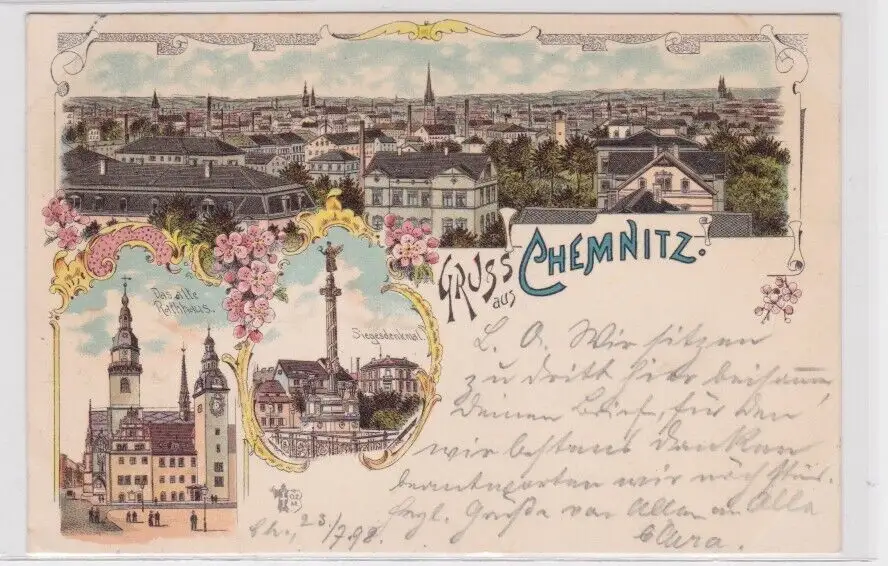 GRUSS aus CHEMNITZ.
Das alte
Rathhaus.
Siegesdenkmal
L. O. Wir sitzen
zu dritt hier beisammen
deinen Brief, für den
wir bestens danken
beantworten wir nächstens.
Hzgl. Grüße von Allen an Alle
Clara.
Ch., 23./7.98.